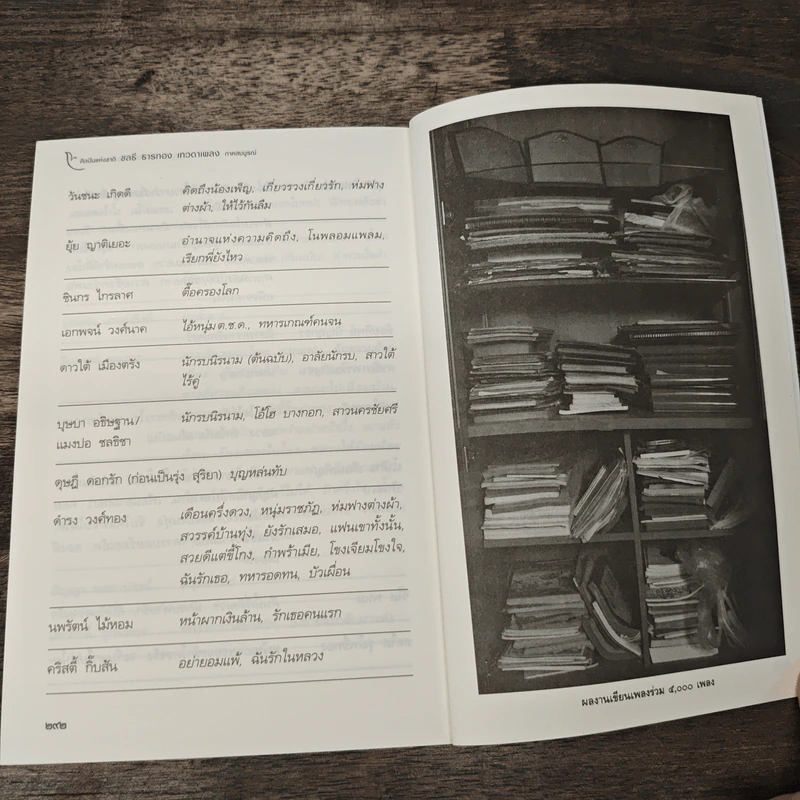 ศิลปินแห่งชาติ ชลธี ธารทอง เทวดาเพลง ภาคสมบูรณ์
วันชนะ เกิดดี คิดถึงน้องเพ็ญ, เกี่ยวรวงเกี่ยวรัก, ห่มฟาง
ต่างผ้า, ให้ไว้กันลืม
ยุ้ย ญาติเยอะ อำนาจแห่งความคิดถึง, โนพลอมแพลม,
เรียกพี่ยังไหว
ชินกร ไกรลาศ ตี๋อครองโลก
เอกพจน์ วงศ์นาค ไอ้หนุ่ม ต.ช.ด., ทหารเกณฑ์คนจน
ดาวใต้ เมืองตรัง นักรบนิรนาม (ต้นฉบับ), อาลัยนักรบ, สาวใต้
ไร้คู่
บุษบา อธิษฐาน/ นักรบนิรนาม, โอ้โฮ บางกอก, สาวนครชัยศรี
แมงปอ ชลธิชา
ดุษฎี ดอกรัก (ก่อนเป็นรุ่ง สุริยา) บุญหล่นทับ
ดำรง วงศ์ทอง เดือนครึ่งดวง, หนุ่มราชภัฏ, ห่มฟางต่างผ้า,
สวรรค์บ้านทุ่ง, ยังรักเสมอ, แฟนเขาทั้งนั้น,
สวยดีแต่ขี้โกง, กำพร้าเมีย, โขงเจียมโขงใจ,
ฉันรักเธอ, ทหารอดทน, บัวเผื่อน
นพรัตน์ ไม้หอม หน้าผากเงินล้าน, รักเธอคนแรก
คริสตี้ กิ๊บสัน อย่ายอมแพ้, ฉันรักในหลวง
๒๙๒
ผลงานเขียนเพลงร่วม ๔,๐๐๐ เพลง